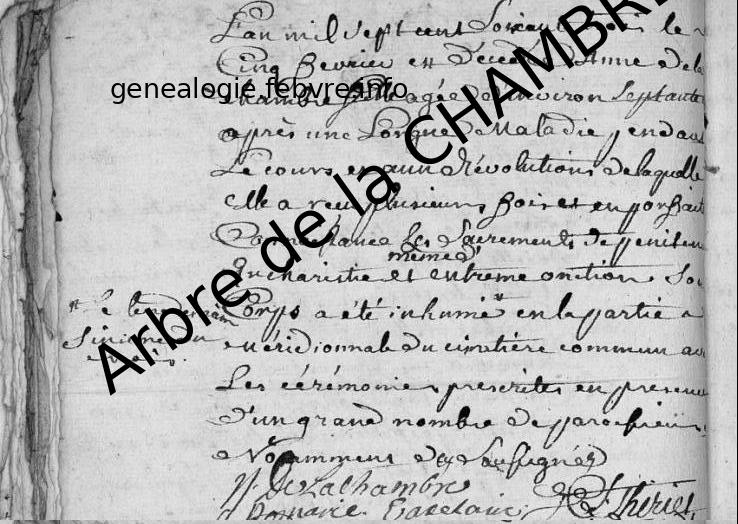 L'an mil sept cent soixante trois le
Cinq fevrier est décédée Anne dela
chambre fille agée denviron septante
après une Longue Maladie pendant
Le cours et aux Révolutions delaquelle
Elle a reçu plusieurs fois et en parfaite
Connoissance Les Sacrements de peniten
même d'
Eucharistie et extreme onction Son
Corps a été inhumé * en la partie
méridionnale du cimetière commun
Les cérémonies prescrites en presence
d'un grand nombre de paroissiens
Notamment des Soussignés
* Le lendemain
sixième du
N: De Lachambre
genealogie.febvre.info
Arbre de la CHAMBRE